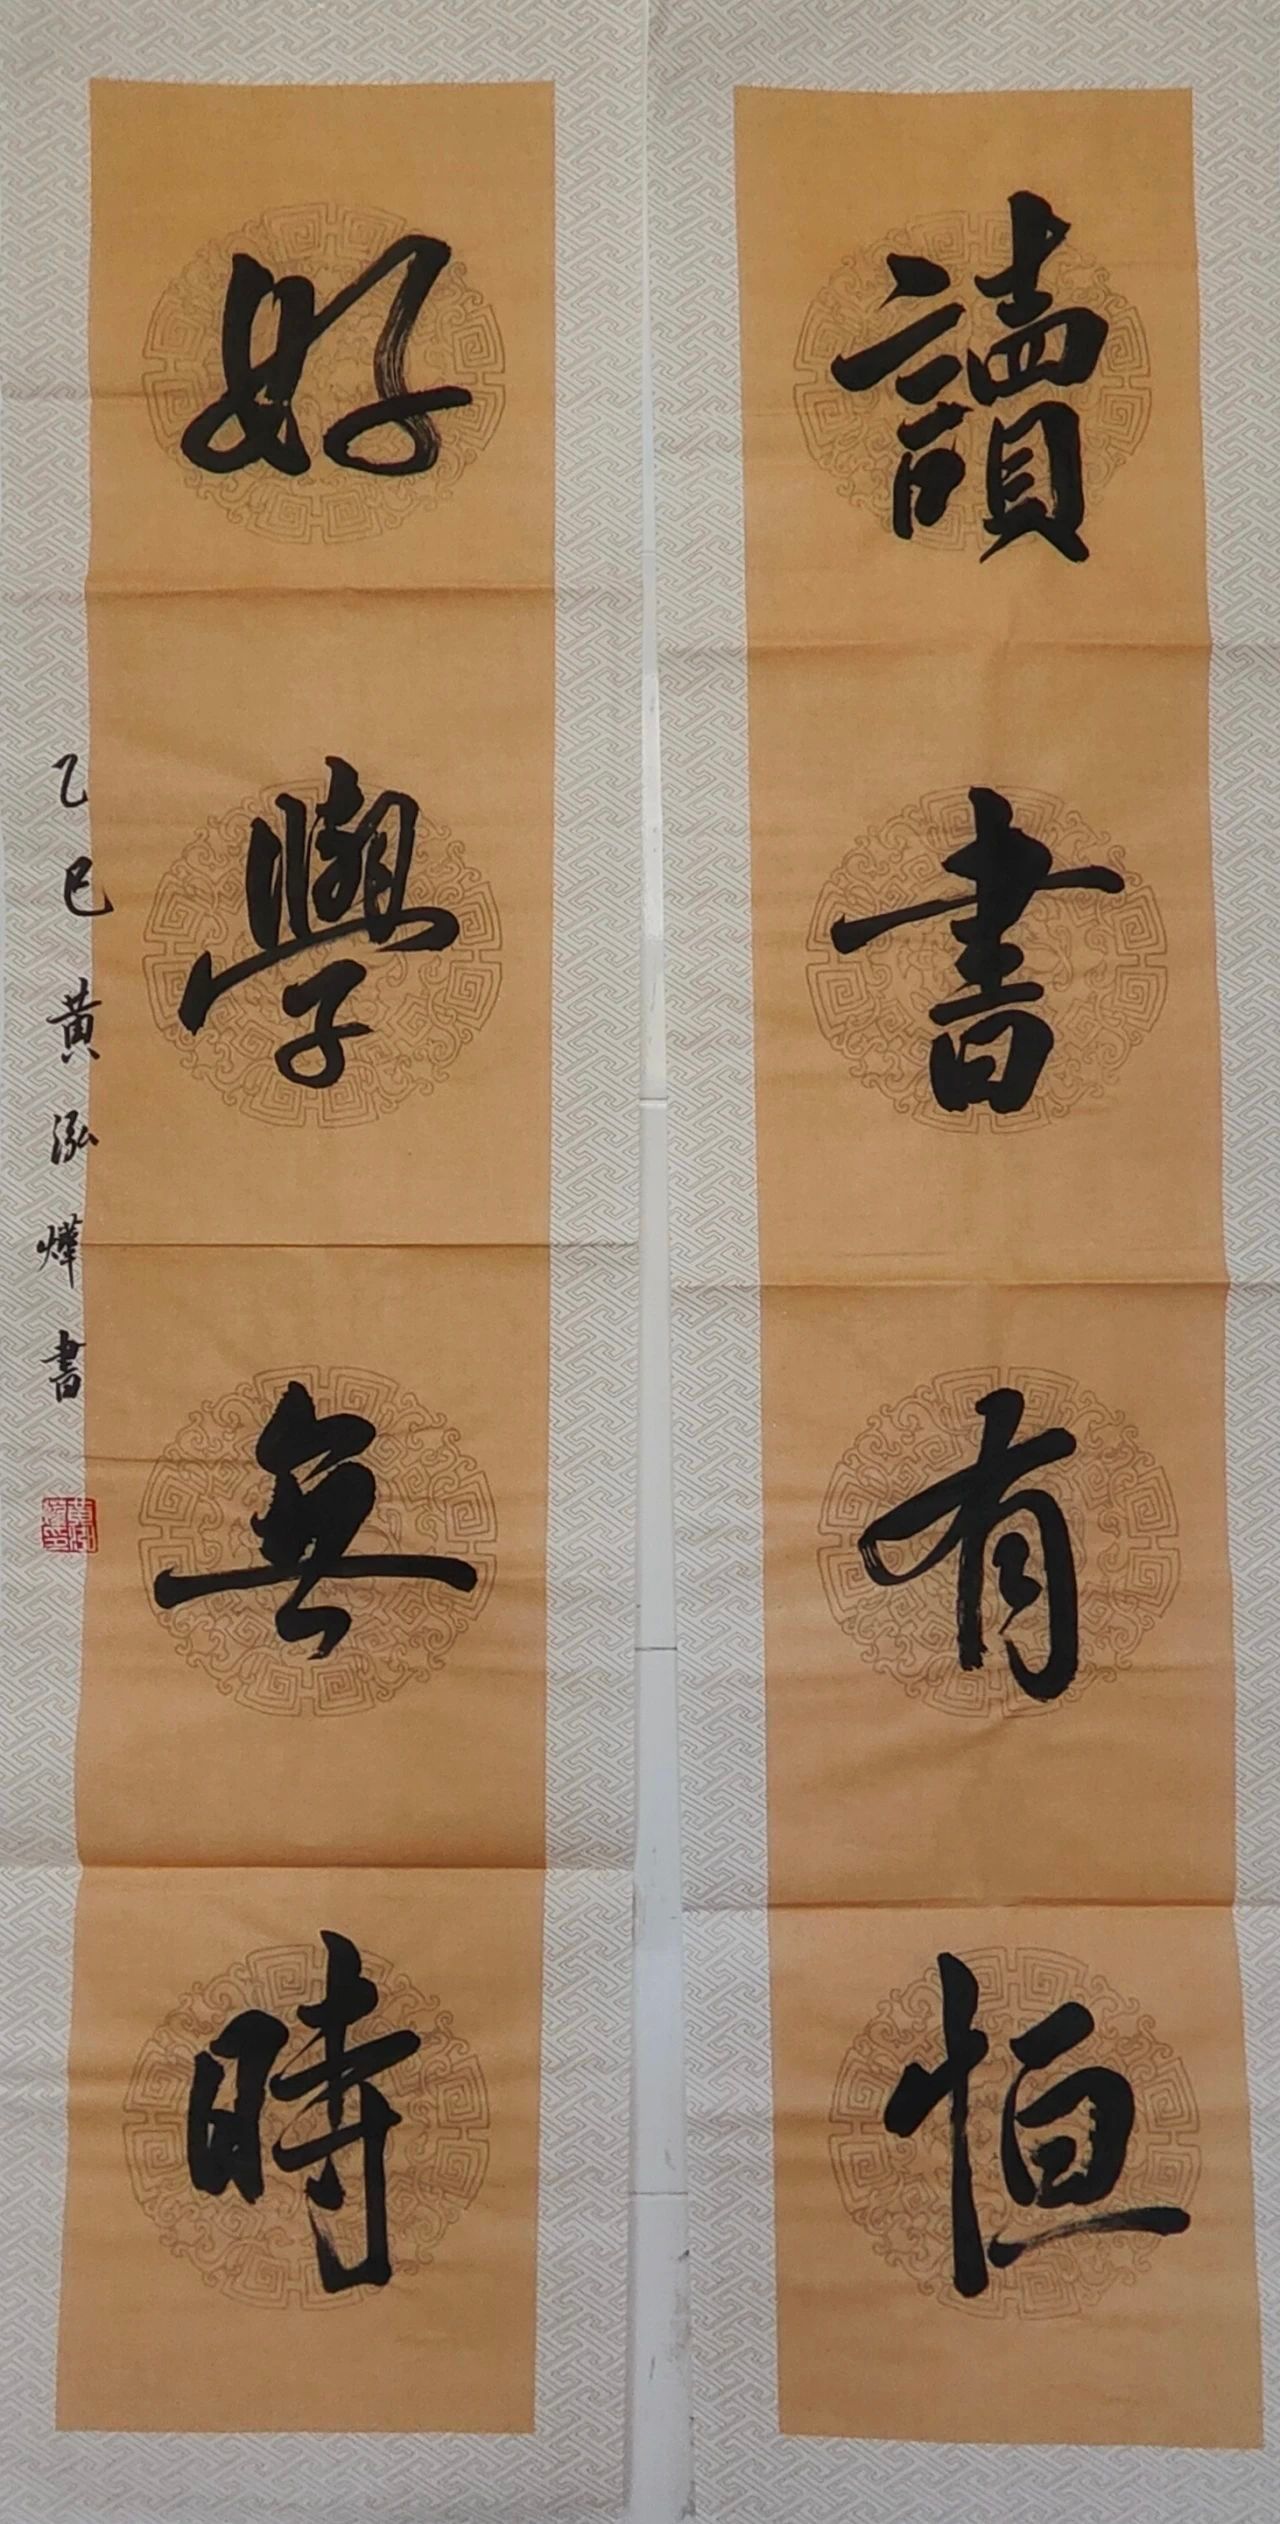 讀書有恒
好學無時
乙巳黄泓燁書